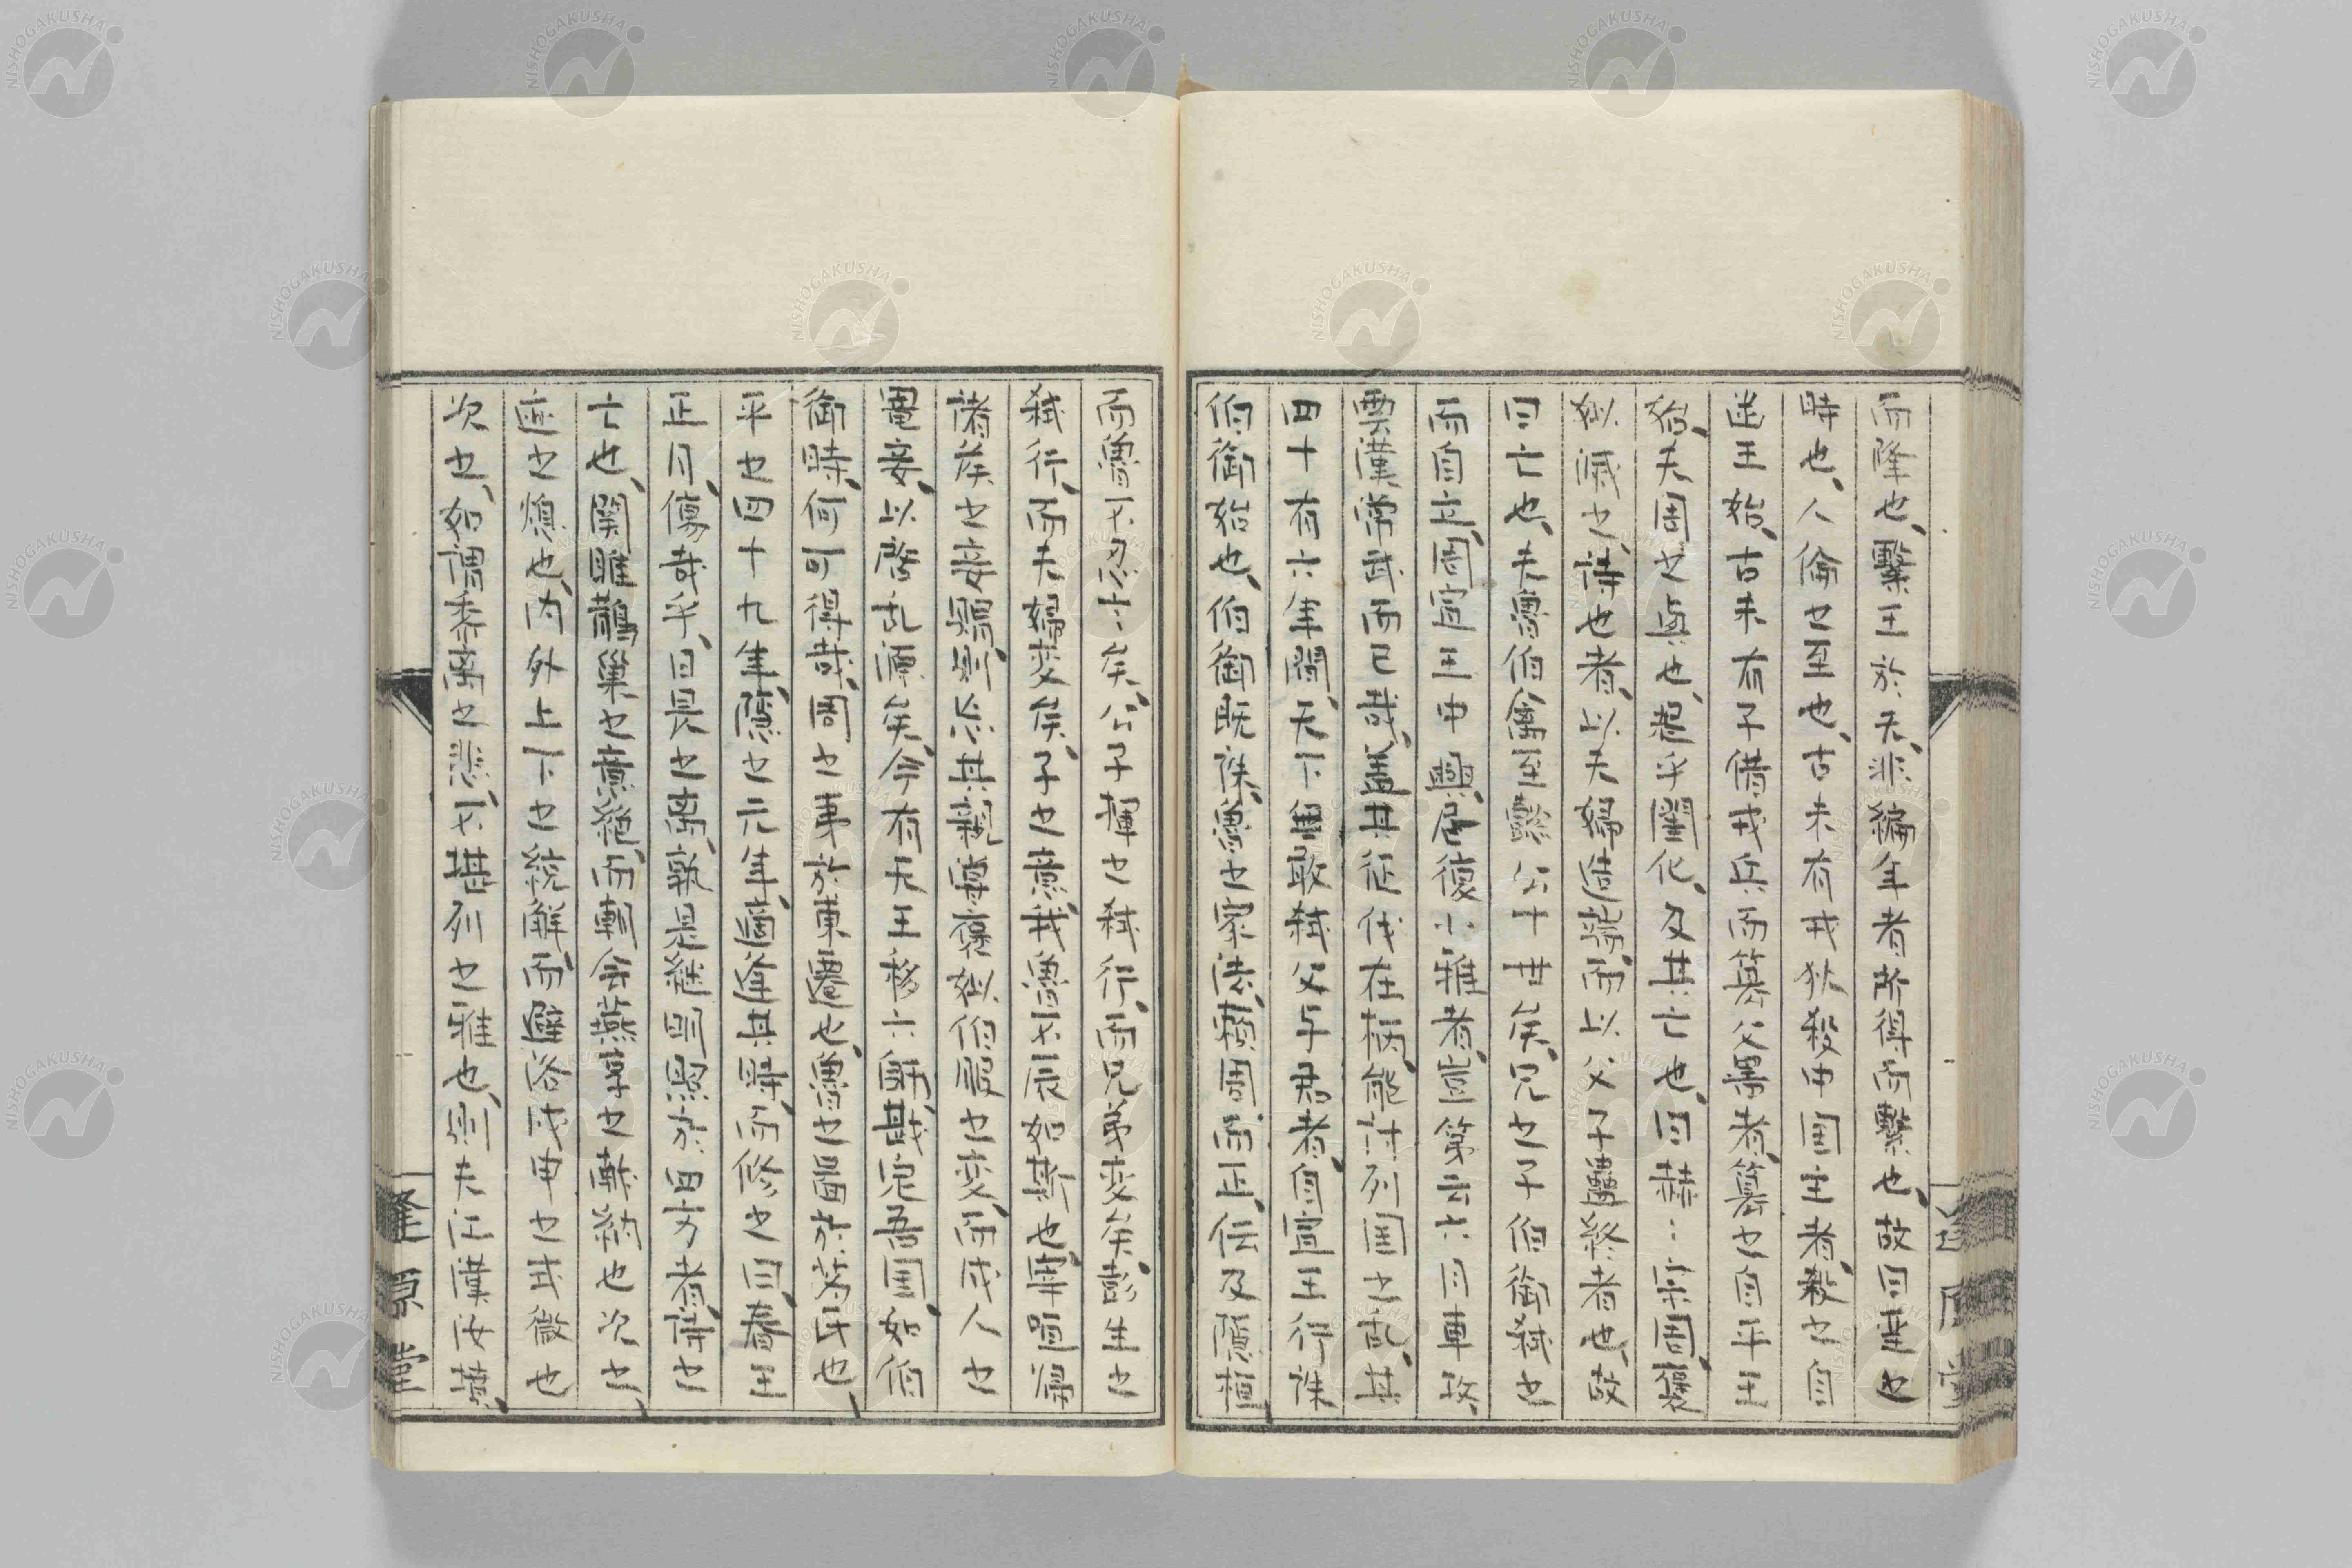 而隆也、繫王於天、非編年者所得而繫也、故曰筆也
時也、人倫之至也、古未有戎狄殺中国主者、殺之自
幽王始、古未有子借戎兵而篡父署者、篡之自平王
始、夫周之與也、起乎闈化、及其亡也、曰赫〻宗周褒
姒滅之、詩也者、以夫婦造端、而以父子壘終者也、故
曰亡也、夫魯伯禽至懿公十世矣、兄之子伯御弒之
而自立、周宣王中興、居復小雅者、豈第云六月車攻、
雲漢常武而已哉、蓋其征伐在柄、能討列国之乱、其
四十有六年間、天下無敢弒父与君者、自宣王行誅
伯御始也、伯御既誅、魯之家法、賴周而正、伝及隱桓
而魯不忍六矣、公子揮之弒行、而兄弟変矣、彭生之
弒行、而夫婦変矣、子之意、我魯不辰如斯也、宰咺歸
諸矦之妾賵、則忘其親辱褒姒伯服之変、而成人之
寵妾、以啓乱源矣、今有天王移六師、戡定吾国、如伯
御時、何可得哉、周之事於東遷也、魯之昌於芳氏也、
平之四十九年、隱之元年、適逢其時、而修之曰、春王
正月、傷哉乎、日昃之离、孰是継明照於四方者、詩之
亡也、関雎鵲巣之意絶、而朝会燕享之歡絶也次之、
遲之頽也、内外上下之統解、而避咨戍申之哉微也
次之、如謂黍离之悲、不堪列之雅也、則夫江漢汝墳、
隆原堂